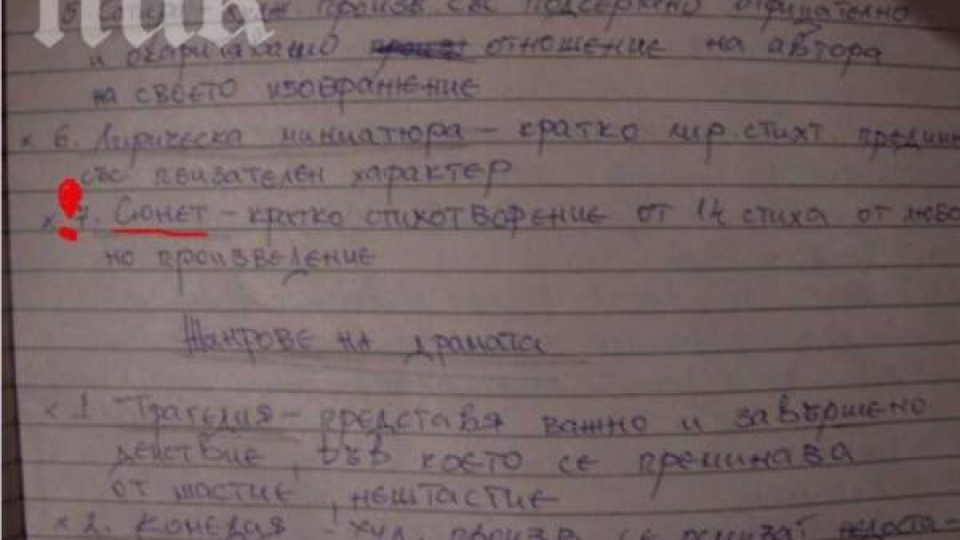 ПИК
5. Сатира – худ. произв. със подчертано отрицателно
и окарикатащо отношение на автора
на своето изображение
x 6. Лирическа миниатюра – кратко лир. стихт
със пейзателен характер
x 7. Сюнет – кратко стихотворение от 14 стиха от
но произведение
Жанрове на драмата
x 1. Трагедия – представя важно и завършено
действие, във което се преминава
от щастие, нештастие
x 2. Комедия – худ. произв. се осмиват недоста-